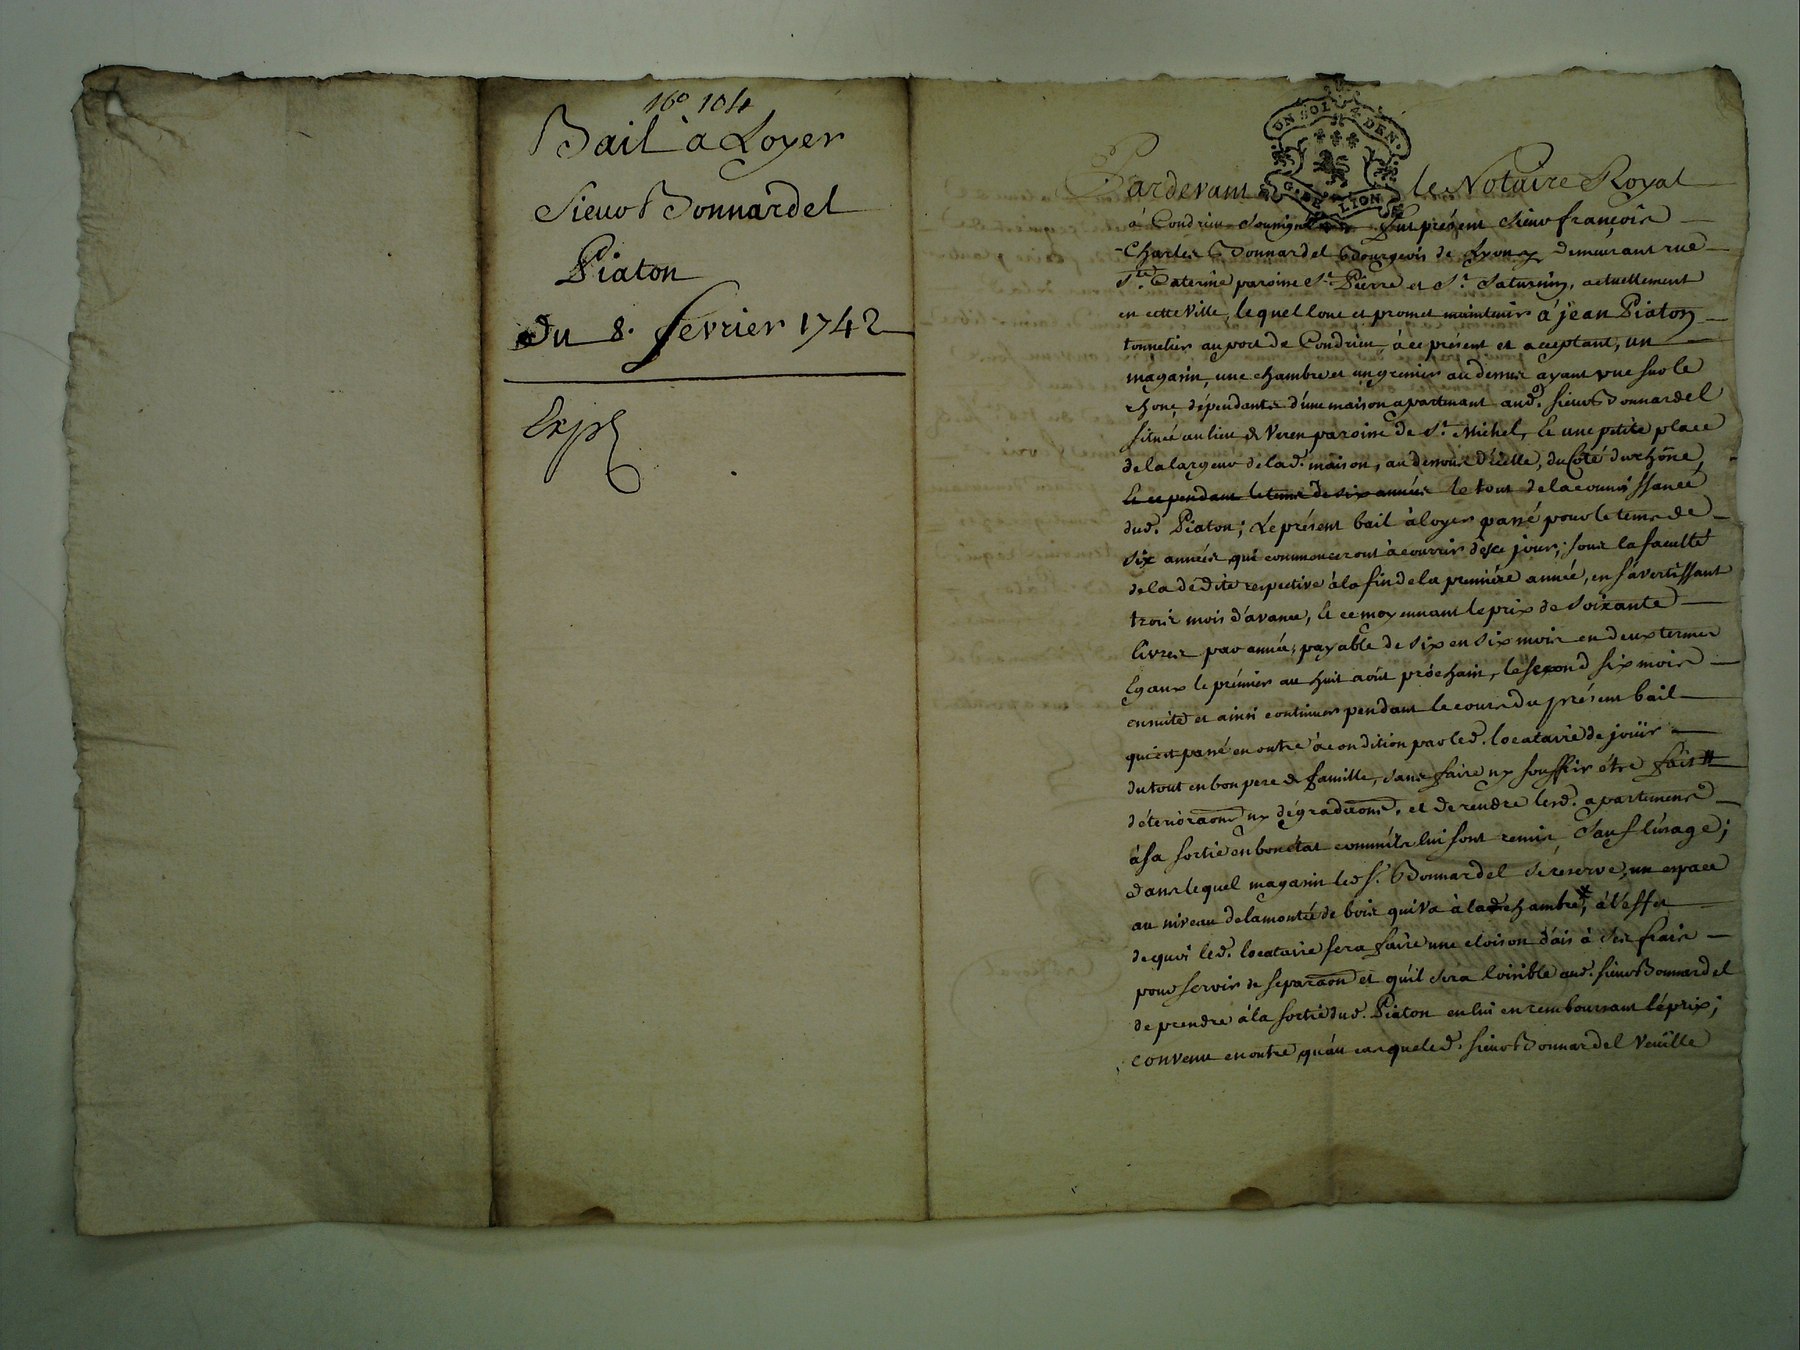 16° 104
Bail à Loyer
Sieur Bonnardel
Piaton
Du 8. fevrier 1742
Expé
UN SOL 4 DEN.
G. DE LION
Pardevant le Notaire Royal
à Condrieu soussigné fut présent sieur françois
Charles Bonnardel Bourgeois de Lyon y demeurant rue
Ste. Caterine paroisse St. Pierre et St. Saturnin, actuellement
en cette Ville, lequel loue et promet maintenir à jean Piaton
tonnelier au port de Condrieu, à ce présent et acceptant, un
magasin, une chambre et un grenier au dessus ayant vue sur le
rhone dépendants d'une maison apartenant aud. sieur Bonnardel
située au lieu de Veren paroisse de St. Michel, & une petite place
de la largeur de lad. maison, au dessous d'icelle, du Côté du rhône,
& ce pendant le tems de six années le tout de la connoissance
dud. Piaton; Le présent bail à loyer passé pour le tems de
six années qui commenceront à courrir dès ce jour, sous la faculté
de la dédite respective à la fin de la première année, en s'avertissant
trois mois d'avance, & ce moyennant le prix de soixante
livres par année, payable de six en six mois en deux termes
Egaux le prémier au huit août prochain, le second six mois
ensuite et ainsi continuer pendant le cours du présent bail
qui est passé en outre à condition par led. locataire de joüir
du tout en bon pere de famille, sans faire ny souffrir être fait
détérioraons ny dégradaons, et de rendre lesd. apartemens
à sa sortie en bon état comme ils lui sont remis sauf l'usage;
dans lequel magasin led. Sr. Bonnardel se reserve, un espace
au niveau de la montée de bois qui va à lad. chambre, à l'effet
de quoi led. locataire fera faire une cloison d'ais à ses frais
pour servir de séparaon et qu'il sera loisible aud. sieur Bonnardel
de prendre à la sortie dud. Piaton en lui en remboursant le prix;
convenu en outre qu'au cas que led. sieur Bonnardel veuille